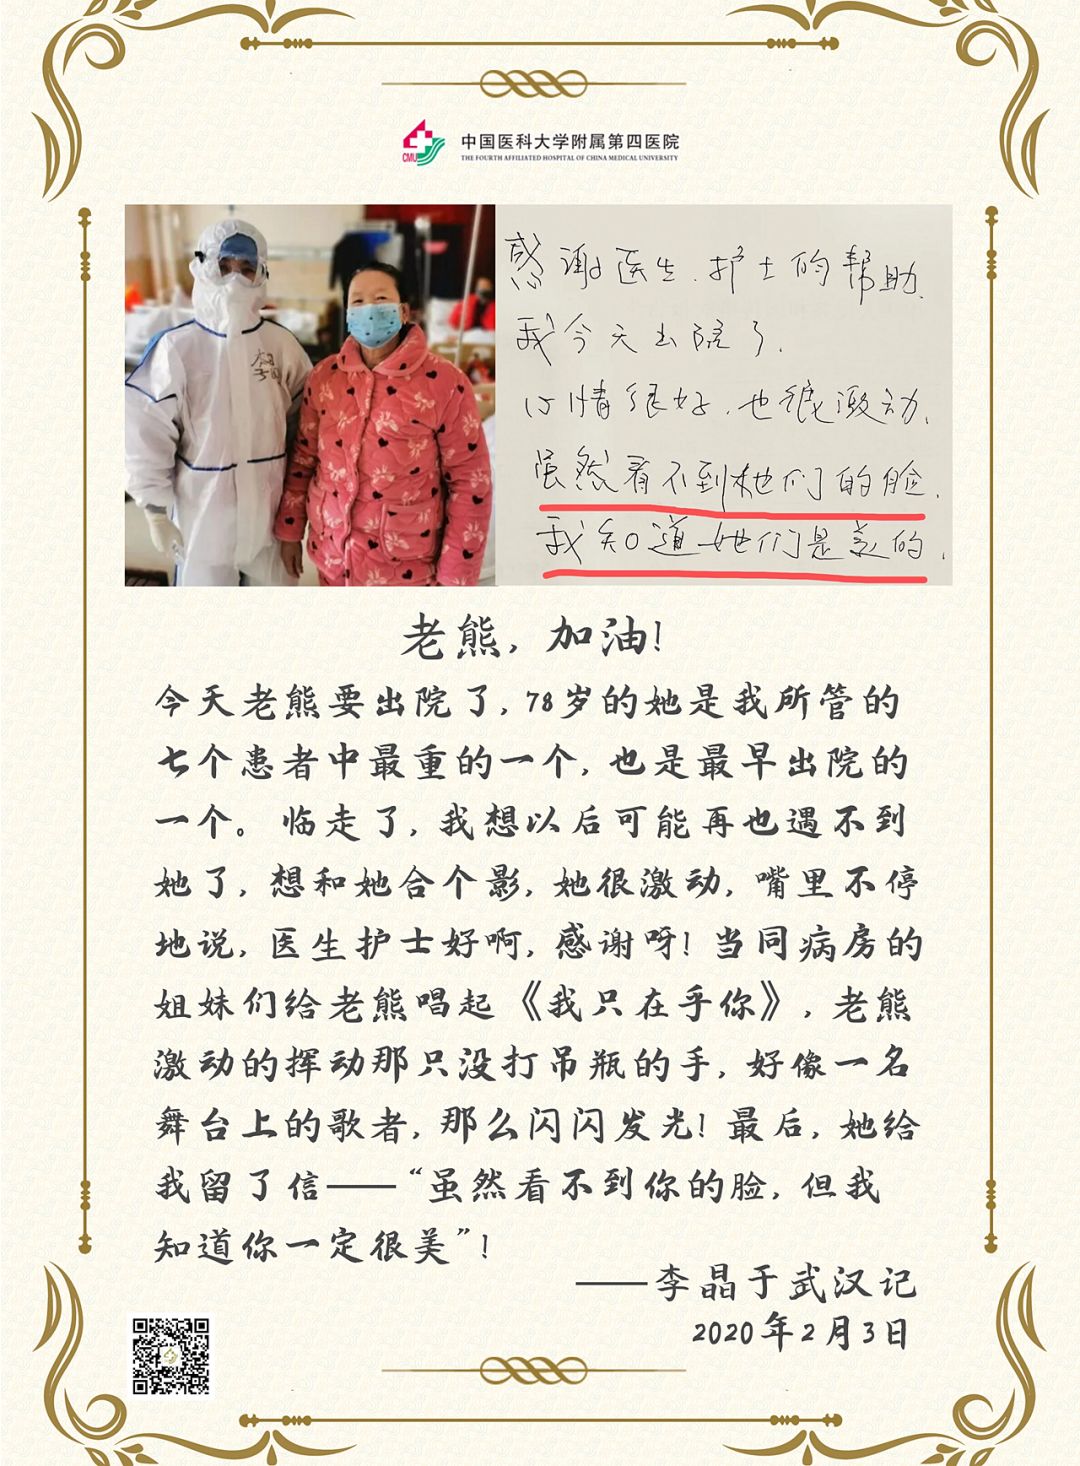 中国医科大学附属第四医院
THE FOURTH AFFILIATED HOSPITAL OF CHINA MEDICAL UNIVERSITY
CMU
感谢医生.护士的帮助.
我今天出院了.
心情很好.也很激动.
虽然看不到她们的脸.
我知道她们是美的.
老熊，加油！
今天老熊要出院了，78岁的她是我所管的
七个患者中最重的一个，也是最早出院的
一个。临走了，我想以后可能再也遇不到
她了，想和她合个影，她很激动，嘴里不停
地说，医生护士好啊，感谢呀！当同病房的
姐妹们给老熊唱起《我只在乎你》，老熊
激动的挥动那只没打吊瓶的手，好像一名
舞台上的歌者，那么闪闪发光！最后，她给
我留了信——“虽然看不到你的脸，但我
知道你一定很美”！
——李晶于武汉记
2020年2月3日